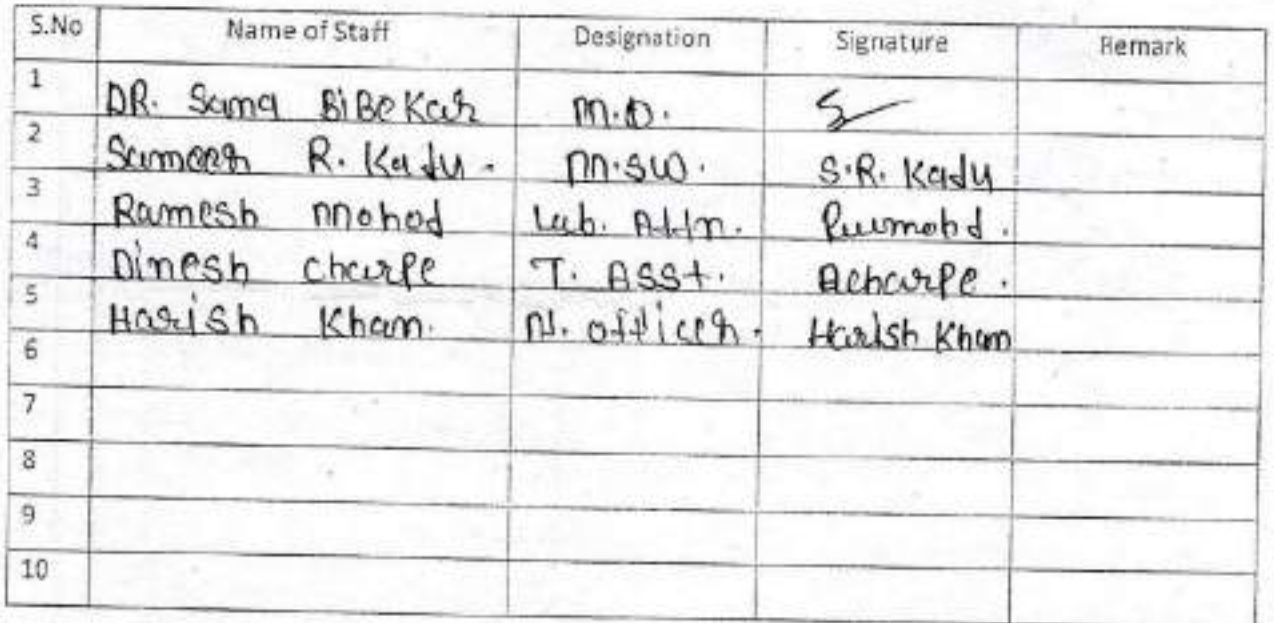 S.No Name of Staff Designation Signature Remark
1 DR. Sana BiBeKar M.D.
2 Sameer R. Kadu. M.SW. S.R. Kadu
3 Ramesh Mohod Lab. Attn.
4 Dinesh Charpe T. Asst. Dcharpe.
5 Harish Kham. N. officer. Harish Kham
6
7
8
9
10